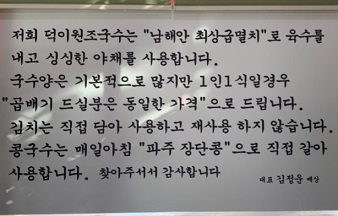 저희 덕이원조국수는 "남해안 최상급멸치"로 육수를
내고 싱싱한 야채를 사용합니다.
국수양은 기본적으로 많지만 1인1식일경우
"곱배기 드실분은 동일한 가격"으로 드립니다.
김치는 직접 담아 사용하고 재사용 하지 않습니다.
콩국수는 매일아침 "파주 장단콩"으로 직접 갈아
사용합니다. 찾아주셔서 감사합니다
대표 김점운 배상